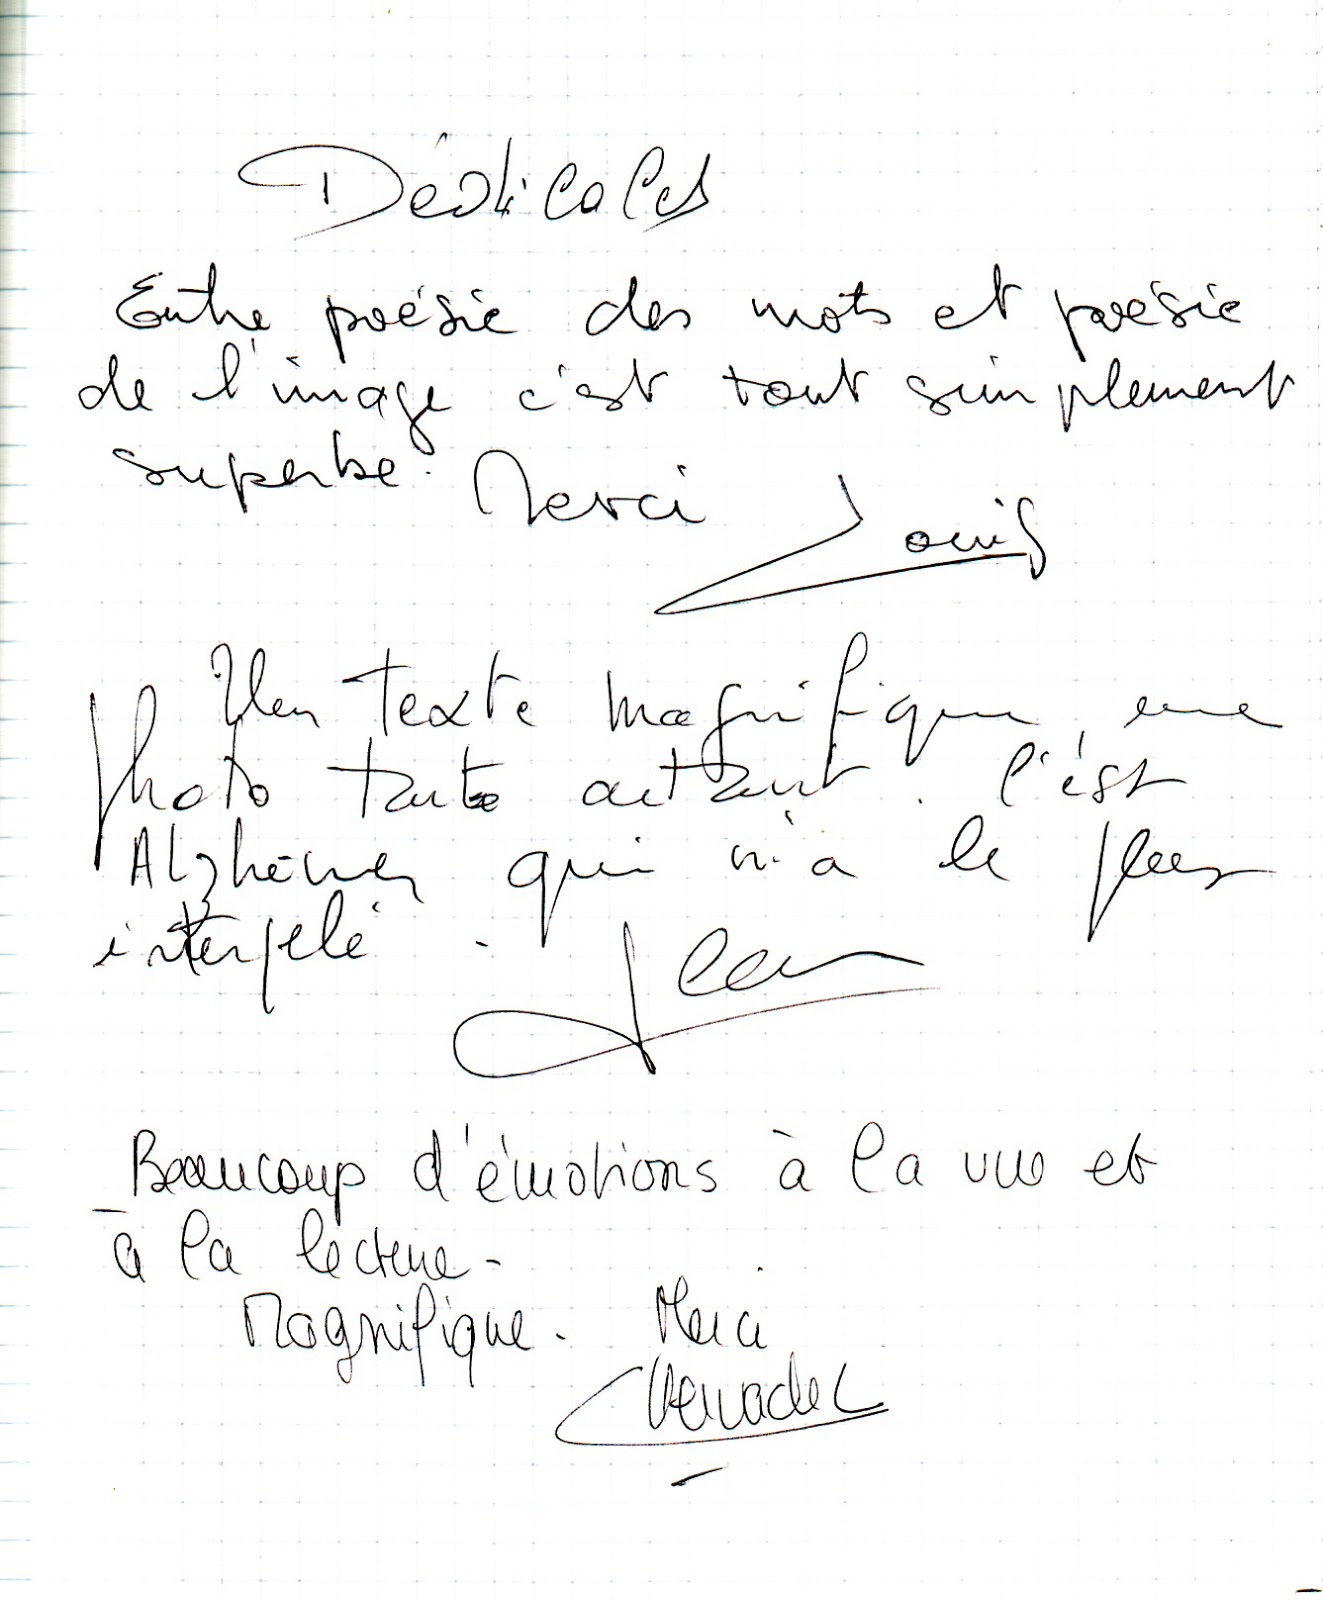 Dédicaces
Entre poésie des mots et poésie
de l'image c'est tout simplement
superbe. Merci
Louis
Un texte magnifique, une
photo toute autant. C'est
Alzheimer qui m'a le plus
interpelé.
Jean
Beaucoup d'émotions à la vue et
à la lecture.
Magnifique. Merci